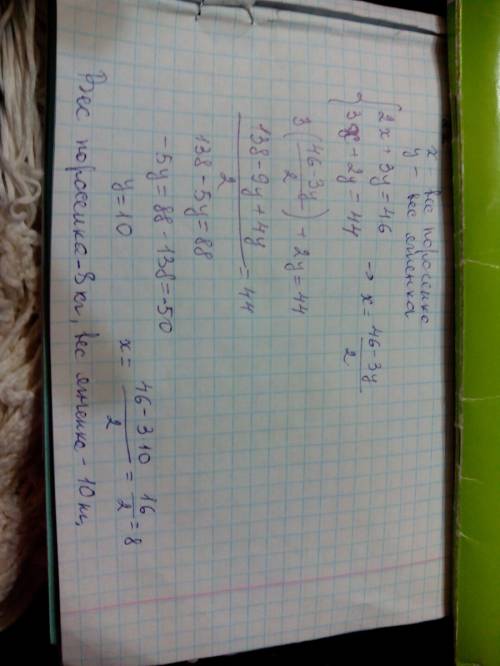 x - вес поросенка
y - вес ягненка
{2x + 3y = 46 → x = \frac{46-3y}{2}
{3x + 2y = 44
3(\frac{46-3y}{2}) + 2y = 44
\frac{138-9y+4y}{2} = 44
138 - 5y = 88
-5y = 88 - 138 = -50
y = 10 x = \frac{46-3·10}{2} = \frac{16}{2} = 8
Вес поросенка - 8 кг, вес ягненка - 10 кг.